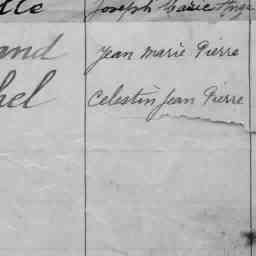 Joseph
and Jean marie Pierre
hel Celestin Jean Pierre